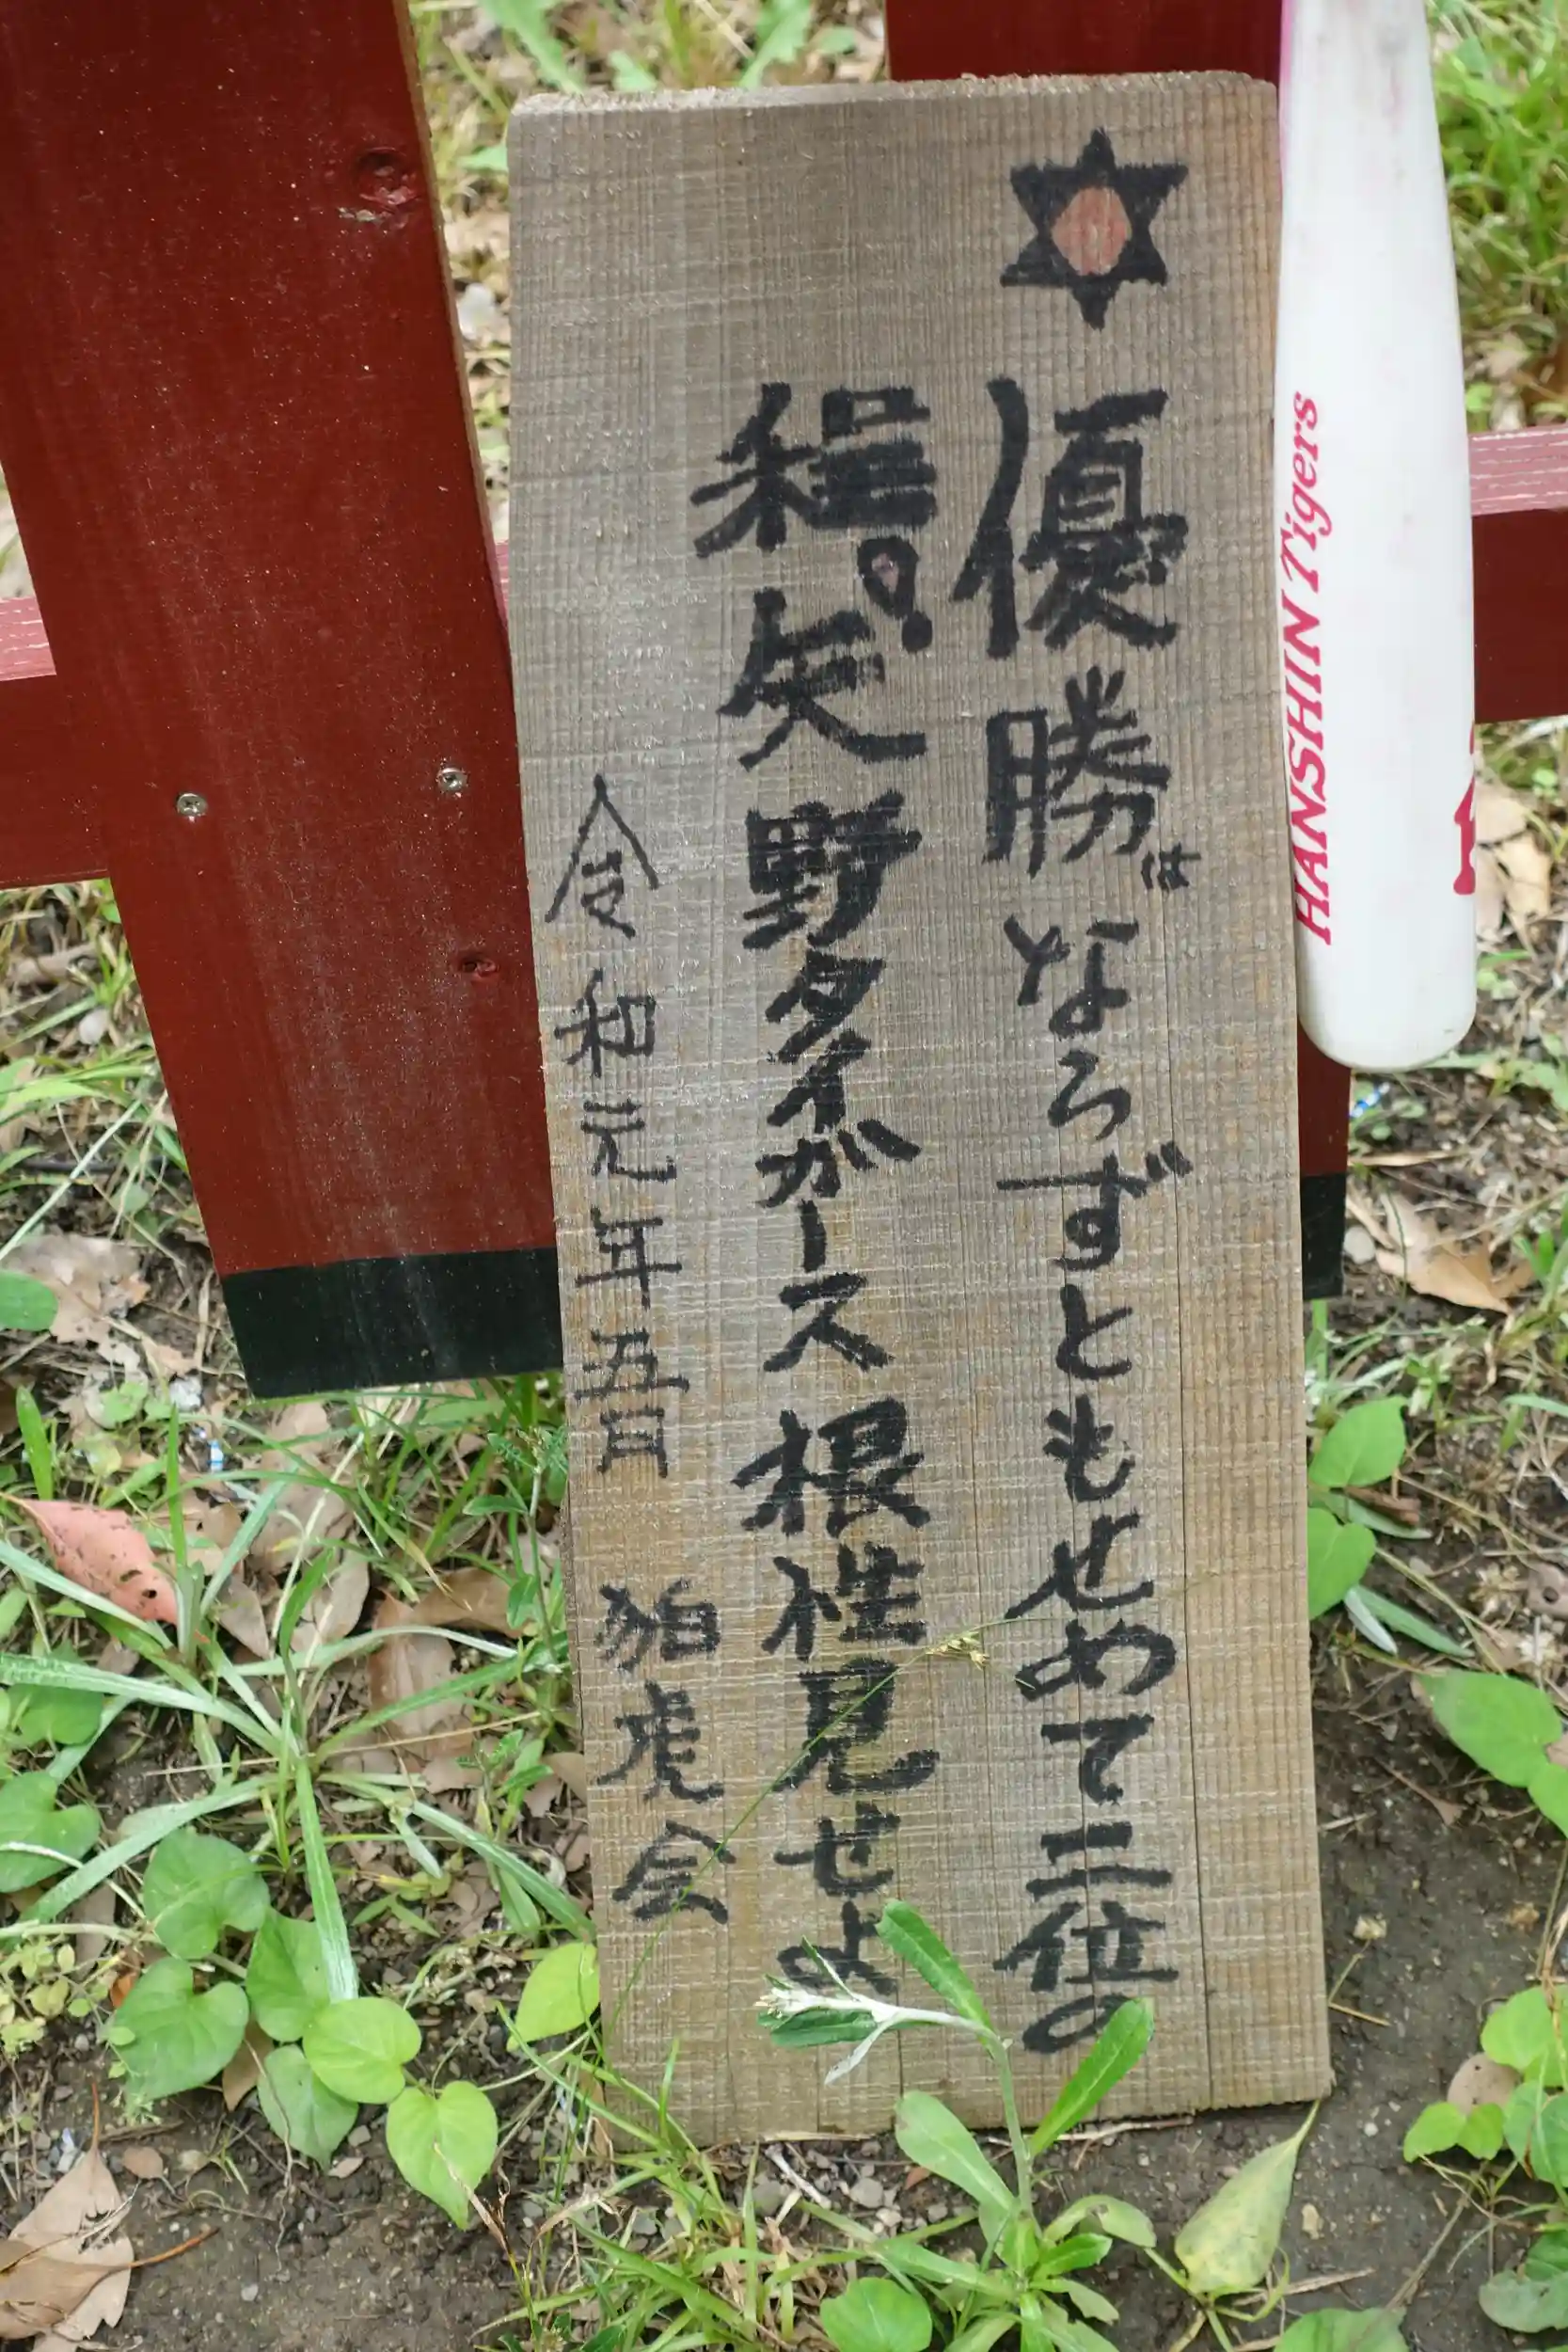 優勝はならずともせめて二位の
程!矢野タイガース根性見せよ
令和元年五月 狛虎会
HANSHIN Tigers